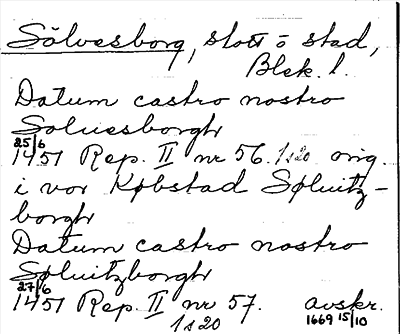 Sölvesborg, slott o stad,
Blek. l.
Datum castro nostro
Soluesborgh
25/6
1451 Rep. II nr 56. 1 s 20 orig.
i vor Købstad Søluitz-
borgh
Datum castro nostro
Søluitzborgh
27/6
1451 Rep. II nr 57. avskr.
1 s 20 1669 15/10